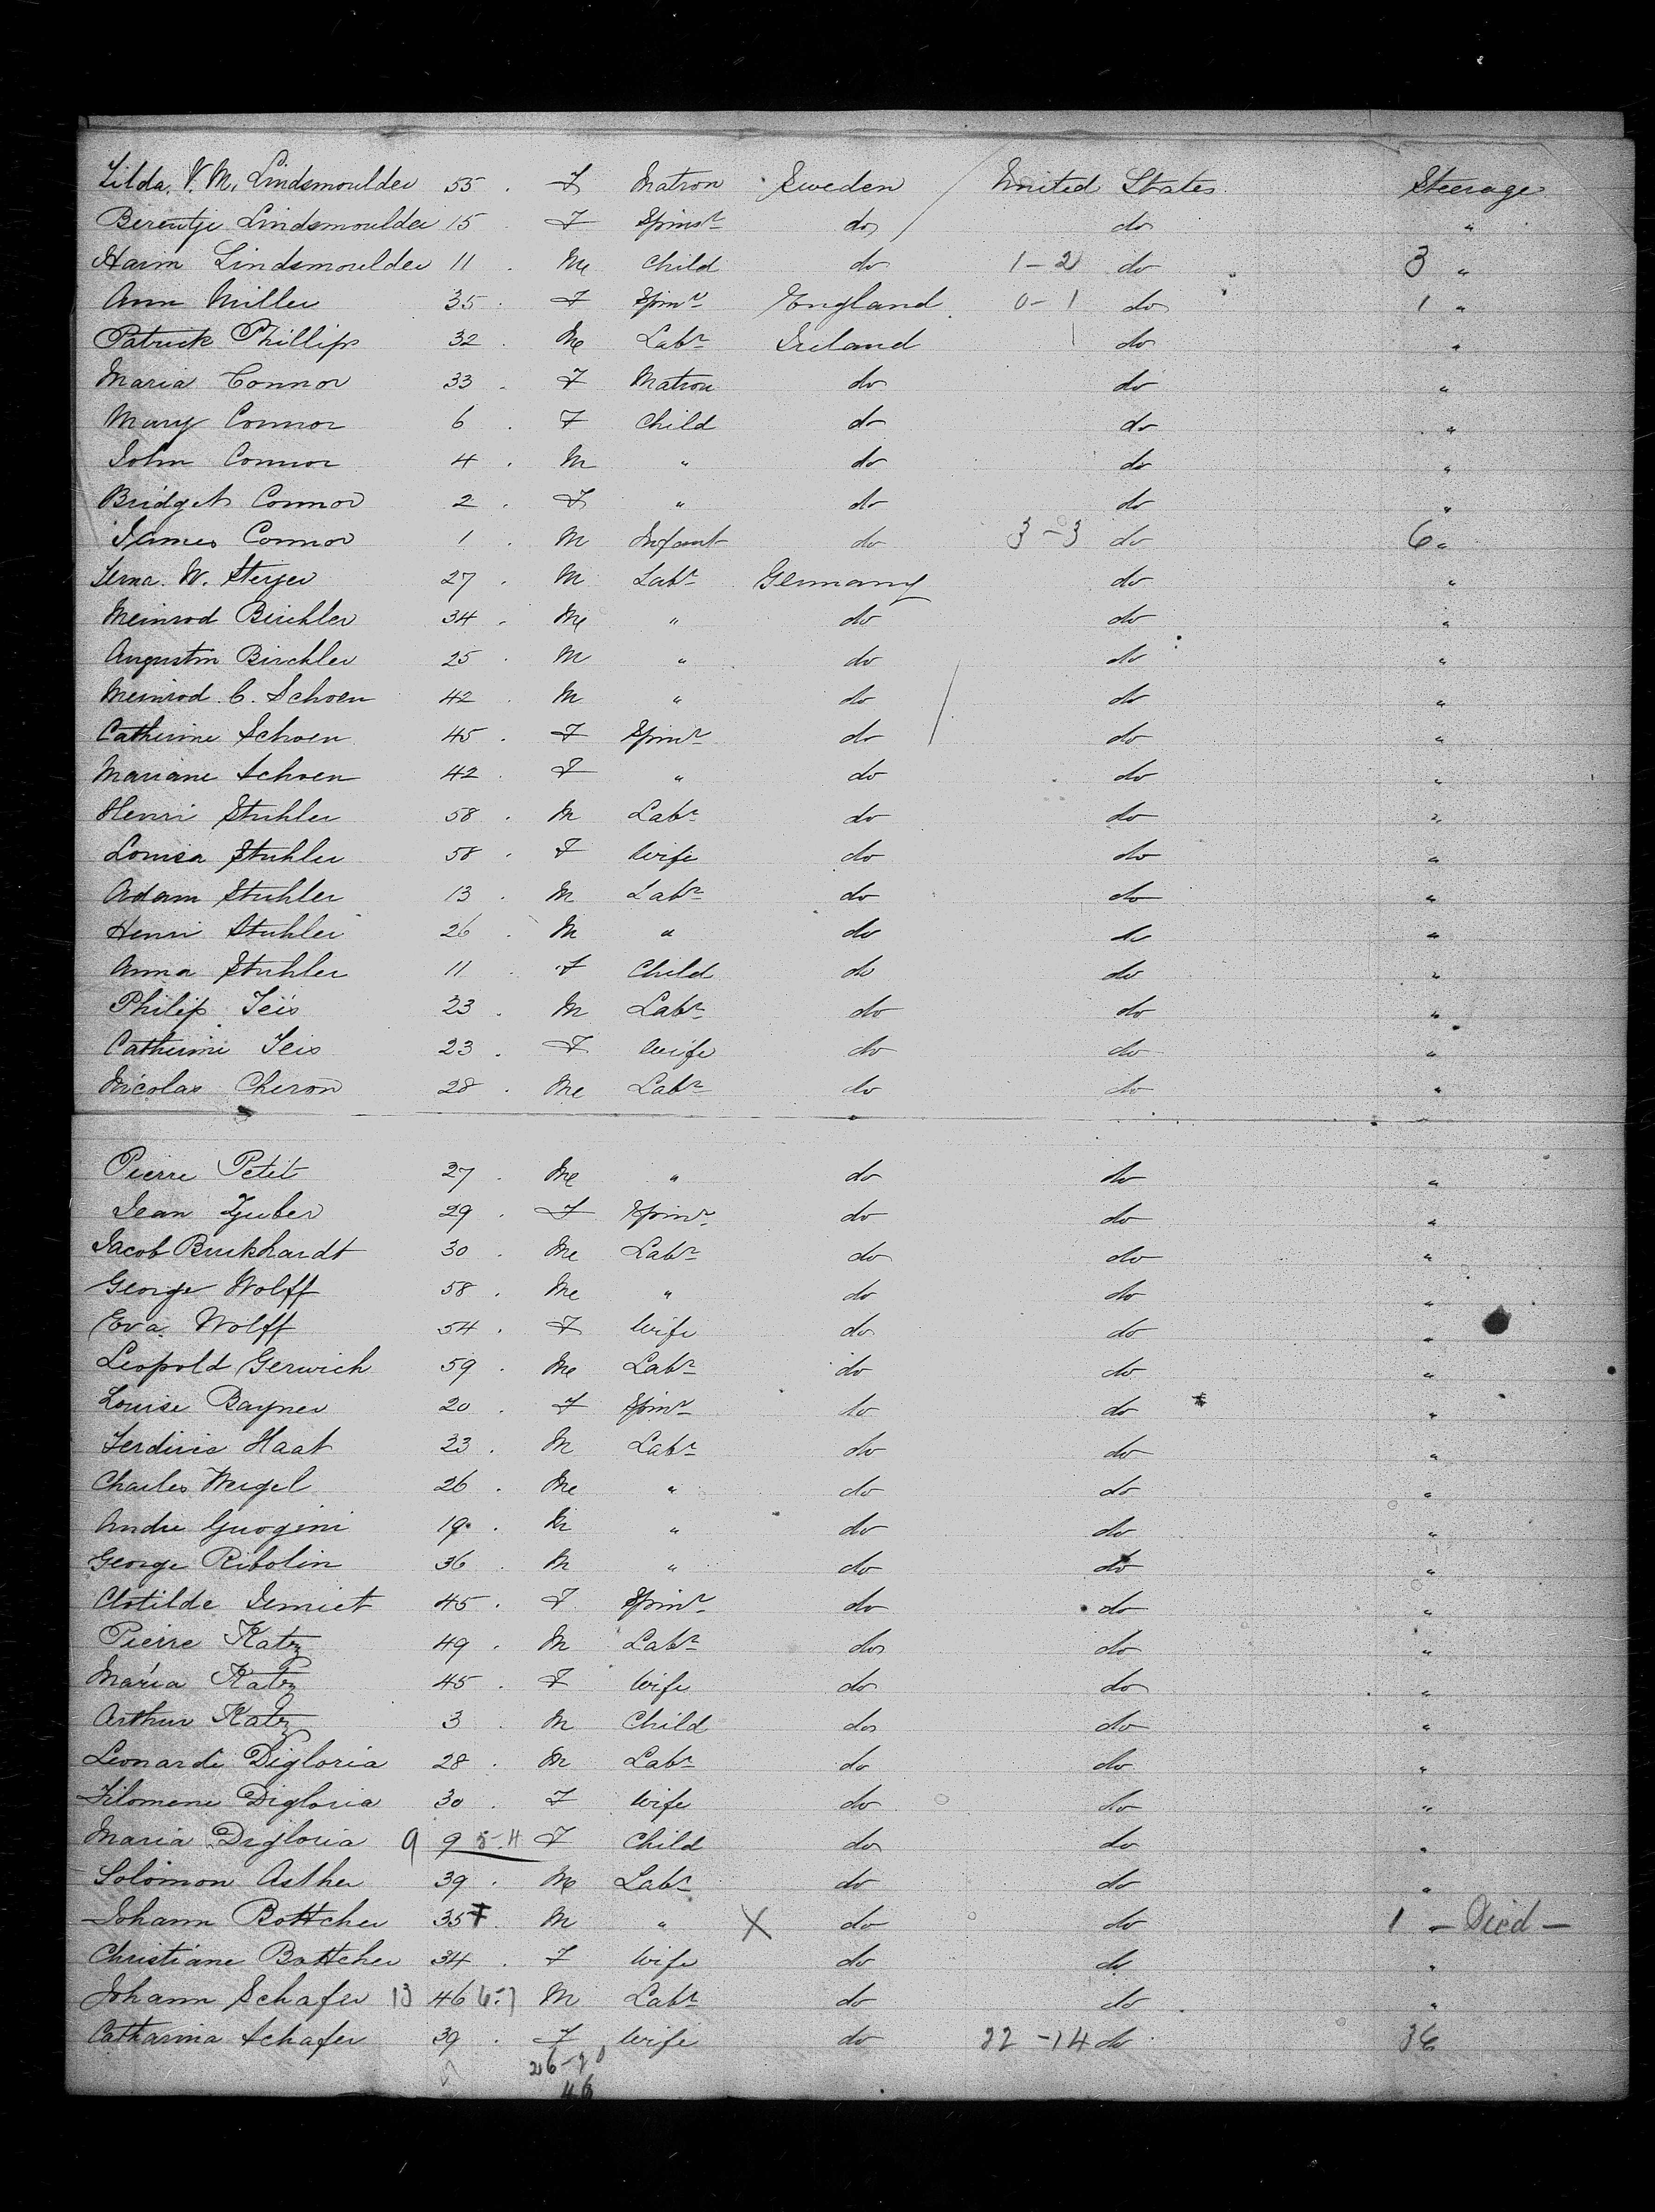 Tilda. V. M. Lindsmoulder 55 . F Matron Sweden United States Steerage
Berentje Lindsmoulder 15 . F Spinsr do do "
Harm Lindsmoulder 11 . M Child do 1-2 do 3 "
Ann Miller 35 . F Spinr England 0-1 do 1 "
Patrick Phillips 32 . M Labr Ireland do "
Maria Connor 33 . F Matron do do "
Mary Connor 6 . F Child do do "
John Connor 4 . M " do do "
Bridget Connor 2 . F " do do "
James Connor 1 . M Infant do 3-3 do 6 "
W. Steiger 27 . M Labr Germany do "
Meinrod Birchler 34 . M " do do "
Augustin Birchler 25 . M " do do "
Meinrod C. Schoen 42 . M " do do "
Catherine Schoen 45 . F Spinr do do "
Mariane Schoen 42 . F " do do "
Henri Stuhler 58 . M Labr do do "
Louisa Stuhler 58 . F Wife do do "
Adam Stuhler 13 . M Labr do do "
Henri Stuhler 26 . M " do do "
Anna Stuhler 11 . F Child do do "
Philip Teis 23 . M Labr do do "
Catherine Teis 23 . F Wife do do "
Nicolas Cheron 28 . M Labr do do "
Pierre Petit 27 . M " do do "
Jean Zuber 29 . F Spinr do do "
Jacob Burkhardt 30 . M Labr do do "
George Wolff 58 . M " do do "
Eva Wolff 54 . F Wife do do "
Leopold Gerwich 59 . M Labr do do "
Louise Bayner 20 . F Spinr do do "
Haat 23 . M Labr do do "
Charles Weigel 26 . M " do do "
Andre Guogini 19 . M " do do "
George Ribolin 36 . M " do do "
Clotilde Demiet 45 . F Spinr do do "
Pierre Katz 49 . M Labr do do "
Maria Katz 45 . F Wife do do "
Arthur Katz 3 . M Child do do "
Leonardi Digloria 28 . M Labr do do "
Filomene Digloria 30 . F Wife do do "
Maria Digloria 9 9 5-4 F Child do do "
Solomon Asther 39 . M Labr do do "
Johann Bottcher 35 . M " X do do 1 - Died -
Christiane Bottcher 34 . F Wife do do "
Johann Schafer 13 46 6-7 M Labr do do "
Catharina Schafer 39 . F Wife do 22-14 do 36
26-20
46